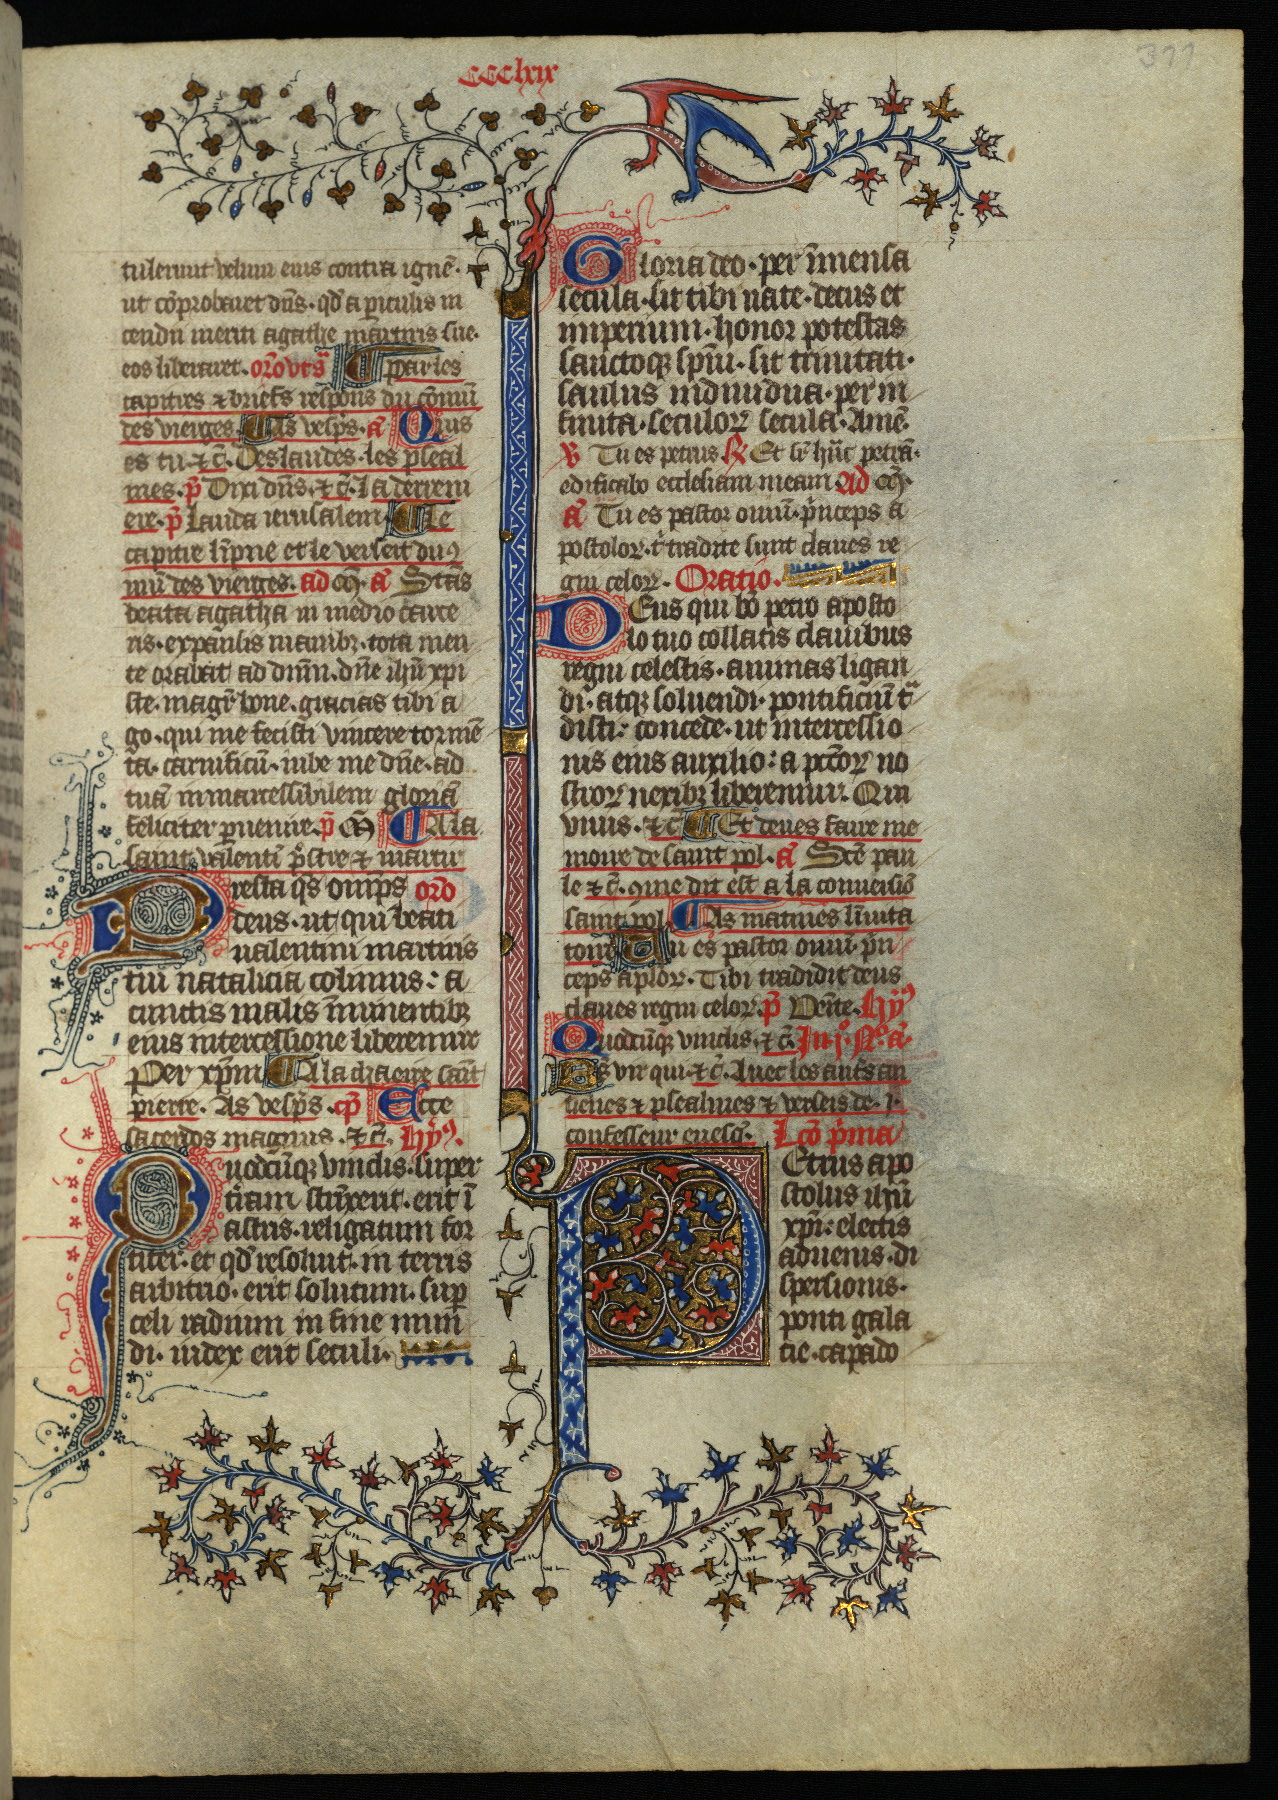 CCClxix
311
tulerunt velum eius contra ignē·
ut cōprobaret dn̄s· qd̄ a periculis in
cendii meriti agathe martiris sue·
eos liberaret. orō vrsa͂ Et par les
capitres & briefs respons du cōmū
des vierges As vesp̄s. a͂ Quis
es tu· & c̄. Des laudes· les pseal
mes· p̄ Dixi dn̄s· & c̄. La derreni
ere· p̄ Lauda ierusalem Le
capitre h̄pne et le verseit du 9
mū des vierges. ad m̄. a͂ Stās
beata agatha in medio carce
ris· expansis manibꝫ· tota men
te orabat ad dn̄m. dn̄e ih̄u xpi
ste· magr̄ bone· gracias tibi a
go· qui me fecisti vincere tormē
ta· carnificū· iube me dn̄e· ad
tuā inmarcessibilem gloriā
feliciter ꝑuenire. p̄ m̄ A la
saint valentī p̄stre & martir
Presta qs̄ omp̄s orō
deus· ut qui beati
ualentini martiris
tui natalicia colimus: a
cunctis malis īminentibꝫ
eius intercessione liberemur
Per xp̄m A la chaeire saīt
pierre. As vesp̄s. cp̄ Ecce
sacerdos magnus. & c̄. Hy9.
Quodcūqꝫ vinclis· super
t̄ram strīxerit· erit ī
astris· religatum for
titer· et qd̄ resoluit· in terris
arbitrio· erit solutum· suꝑ
celi radium in fine mun
di· iudex erit seculi·
Gloria deo· per īmensa
secula· sit tibi nate· decus et
imperium· honor potestas
sanctoqꝫ sp̄iu· sit trinitati·
saulus indiuidua· per in
finita· seculoꝝ secula· Amē.
V̄ Tu es petrus R̄ Et sr̄ hūc petrā·
edificabo ecclesiam meam. Ad m̄.
a͂ Tu es pastor ouiū· p̄nceps a
postoloꝝ· t̄ tradite sunt claues re
gni celoꝝ. Oratio.
Deus qui bō petro aposto
lo tuo collatis clauibus
regni celestis· animas ligan
di· atqꝫ soluendi· pontificiū t͂
didisti: concede· ut intercessio
nis eius auxilio: a pctōꝝ no
stroꝝ nexibꝫ liberemur. Qui
viuis· & c̄ Et deues faire me
moire de saint pol. a͂ Scē pau
le & c̄. 9me dit est a la conuersiō
saint pol As matines līuita
toir Tu es pastor ouiū p̄n
ceps aploꝝ. Tibi tradidit deus
claues regni celoꝝ. p̄ Venite. Hy9
Quodcūqꝫ vinclis· & c̄. In j. No. a͂.
Bs vir qui· & c̄. Auec les autˢ an
tienes & psealmes & verseis de .i.
confesseur euesq̄. Lcō p̄ma
Petrus apo
stolus ih̄u
xp̄i: electis
aduenis· di
spersionis·
ponti gala
tie· capado